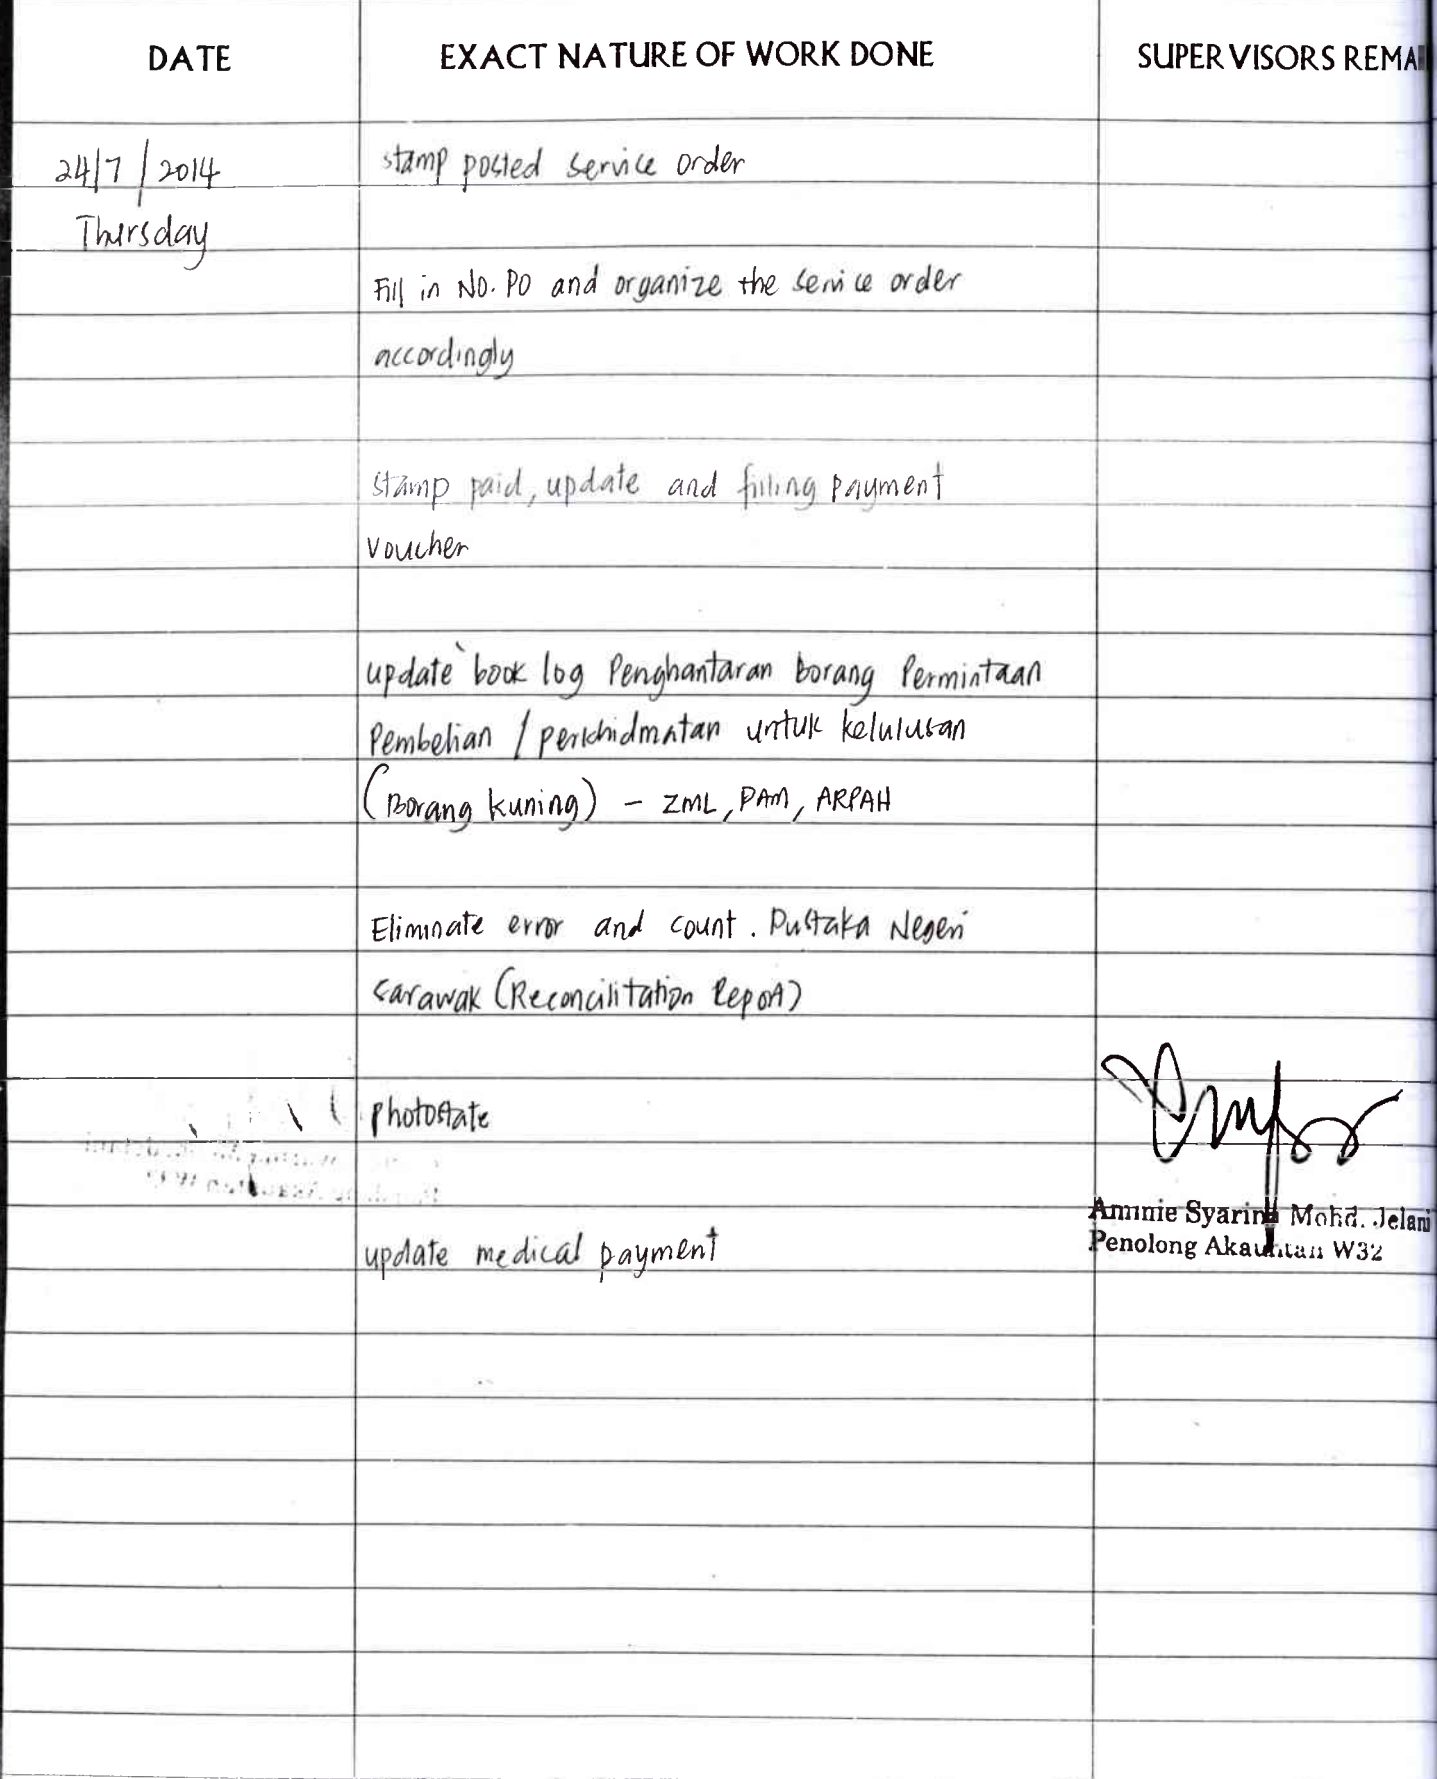 DATE EXACT NATURE OF WORK DONE SUPERVISORS REMA
24/7/2014 stamp posted service order
Thursday
Fill in NO. PO and organize the service order
accordingly
stamp paid, update and filling payment
voucher
update book log Penghantaran Borang Permintaan
Pembelian / perkhidmatan untuk kelulusan
(Borang kuning) - ZML, PAM, ARPAH
Eliminate error and count. Pustaka Negeri
Sarawak (Reconcilitation Report)
photostate
Aminie Syarina Mohd. Jelani
Penolong Akauntan W32
update medical payment